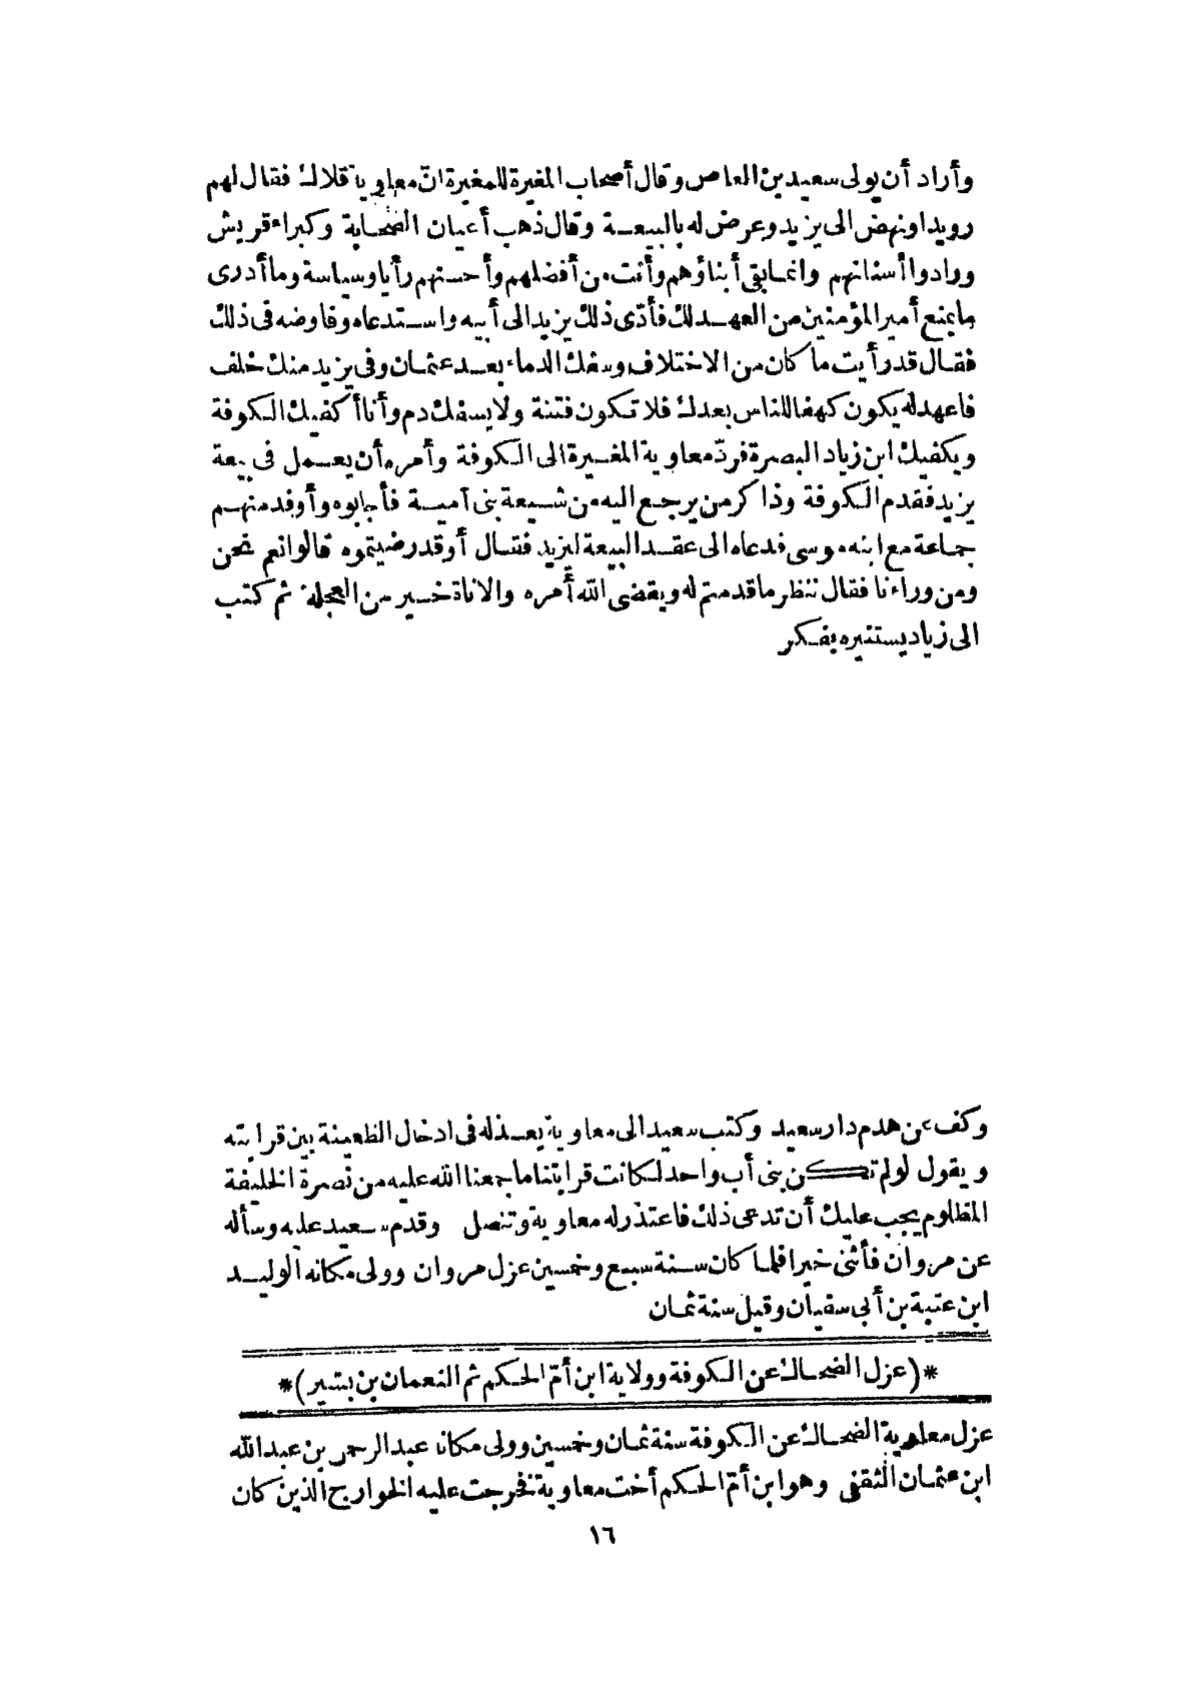 وأراد أن يولى سعيد بن العاص وقال أصحاب المغيرة للمغيرة ان معاوية قلاك فقال لهم
رويدا ونهض الى يزيد وعرض له بالبيعة وقال ذهب أعيان الصحابة وكبراء قريش
ورادوا أسنانهم وانما بقى أبناؤهم وأنت من أفضلهم وأحسنهم رأيا وسياسة وما أدرى
ما يمنع أمير المؤمنين من العهد لك فأدّى ذلك يزيد الى أبيه واستدعاه وفاوضه فى ذلك
فقال قد رأيت ما كان من الاختلاف وسفك الدماء بعد عثمان وفى يزيد منك خلف
فاعهد له يكون كهفا للناس بعدك فلا تكون فتنة ولا يسفك دم وأنا أكفيك الكوفة
ويكفيك ابن زياد البصرة فردّ معاوية المغيرة الى الكوفة وأمره أن يعمل فى بيعة
يزيد فقدم الكوفة وذا كر من يرجع اليه من شيعة بنى أمية فأجابوه وأوفد منهم
جماعة مع ابنه موسى فدعاه الى عقد البيعة ليزيد فقال أوقد رضيتموه قالوا نعم نحن
ومن وراءنا فقال ننظر ما قدمتم له ويقضى الله أمره والاناة خير من العجلة ثم كتب
الى زياد يستنيره بفكر
وكف عن هدم دار سعيد وكتب سعيد الى معاوية يعذله فى ادخال الظعينة بين قرابته
ويقول لو لم تكن بنى أب واحد لكانت قرابتنا ما جمعنا الله عليه من نصرة الخليفة
المظلوم يجب عليك أن تدعى ذلك فاعتذر له معاوية وتنصل وقدم سعيد عليه وسأله
عن مروان فأثنى خيرا فلما كان سنة سبع وخمسين عزل مروان وولى مكانه الوليد
ابن عتبة بن أبى سفيان وقيل سنة ثمان
*(عزل الضحاك عن الكوفة وولاية ابن أمّ الحكم ثم النعمان بن بشير)*
عزل معاوية الضحاك عن الكوفة سنة ثمان وخمسين وولى مكانه عبد الرحمن بن عبد الله
ابن عثمان الثقفى وهو ابن أمّ الحكم أخت معاوية فخرجت عليه الخوارج الذين كان
١٦